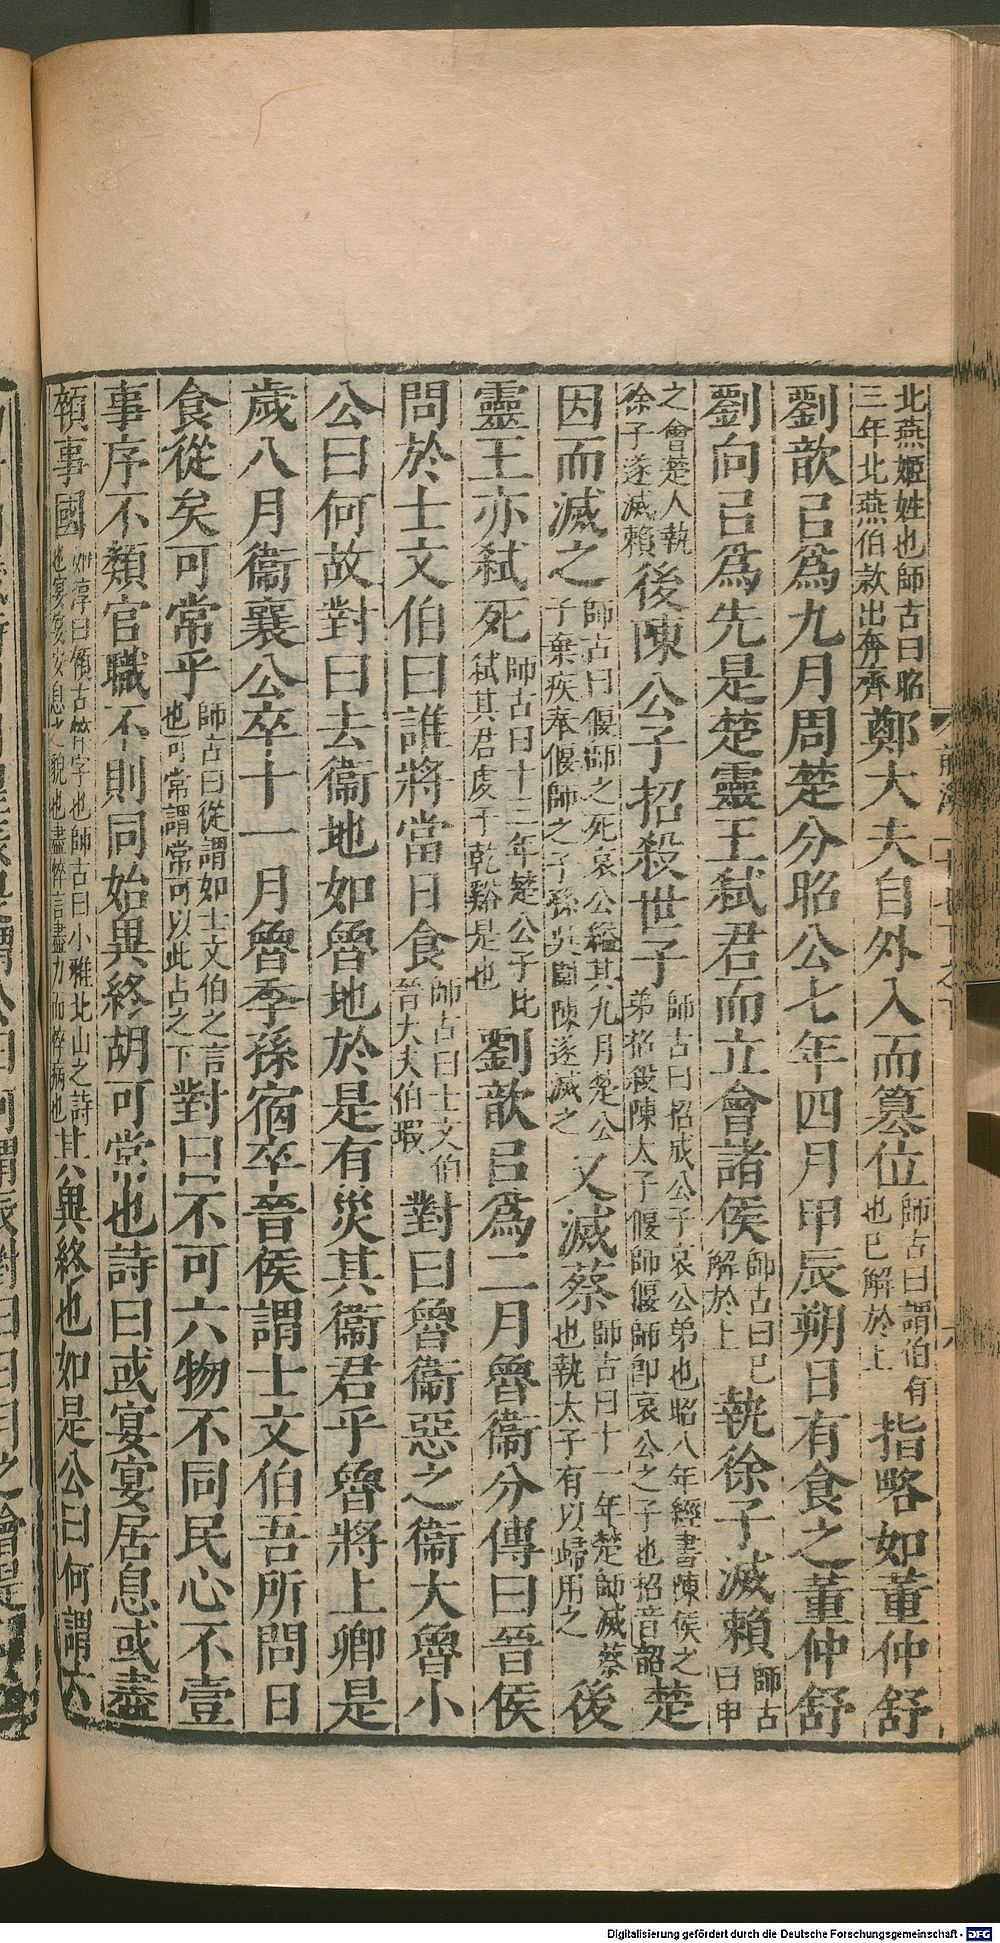 北燕姬姓也師古曰昭三年北燕伯款出奔齊鄭大夫自外入而篡位師古曰謂伯有也已解於上指略如董仲舒
劉歆㠯爲九月周楚分昭公七年四月甲辰朔日有食之董仲舒
劉向㠯爲先是楚靈王弒君而立會諸侯師古曰已解於上執徐子滅賴師古曰申
之會楚人執徐子遂滅賴後陳公子招殺世子師古曰招成公子哀公弟也昭八年經書陳侯之弟招殺陳太子偃師偃師卽哀公之子也招音韶楚
因而滅之師古曰偃師之死哀公縊其九月楚公子棄疾奉偃師之子孫吳圍陳遂滅之又滅蔡師古曰十一年楚師滅蔡也執太子有以歸用之後
靈王亦弒死師古曰十三年楚公子比弒其君虔于乾谿是也劉歆㠯爲二月魯衞分傳曰晉侯
問於士文伯曰誰將當日食師古曰士文伯晉大夫伯瑕對曰魯衞惡之衞大魯小
公曰何故對曰去衞地如魯地於是有災其衞君乎魯將上卿是
歲八月衞襄公卒十一月魯季孫宿卒晉侯謂士文伯吾所問日
食從矣可常乎師古曰從謂如士文伯之言也可常謂常可以此占之下對曰不可六物不同民心不壹
事序不類官職不則同始異終胡可常也詩曰或宴宴居息或盡
顇事國如淳曰顇古悴字也師古曰小雅北山之詩也宴宴安息之貌也盡悴言盡力而悴病也其異終也如是公曰何謂六
前漢二十七下之下
六
Digitalisierung gefördert durch die Deutsche Forschungsgemeinschaft - DFG